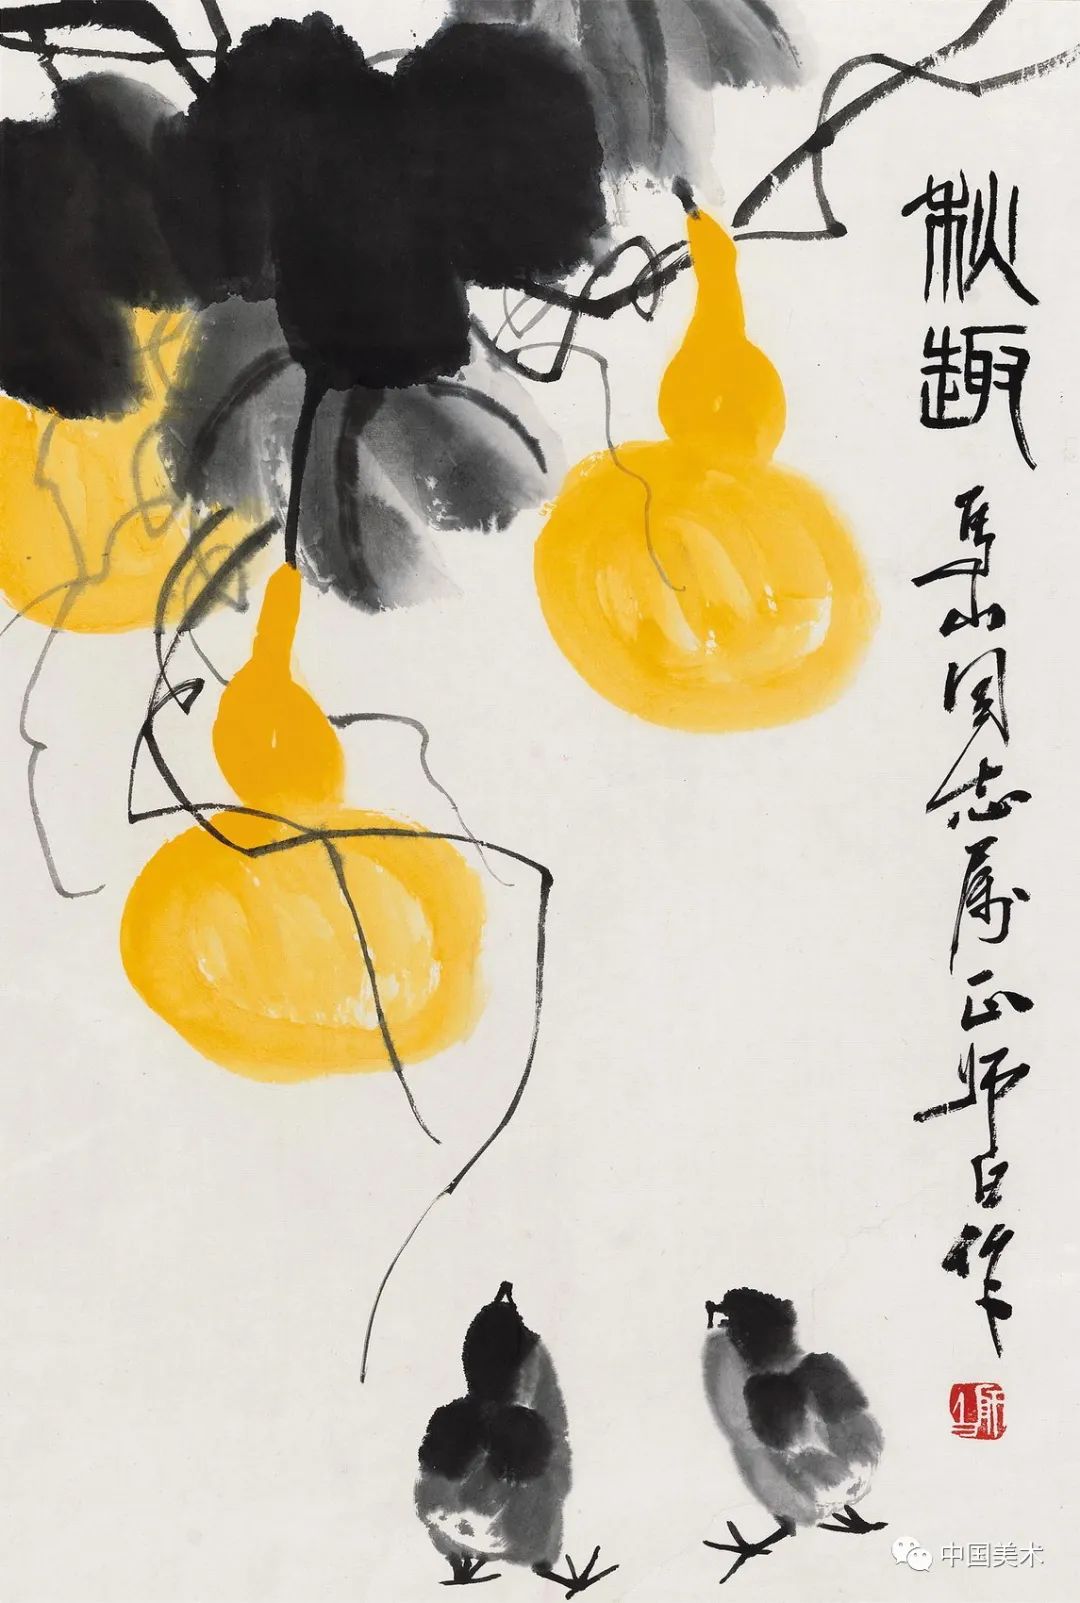 秋趣
山同志属正师白作
中国美术